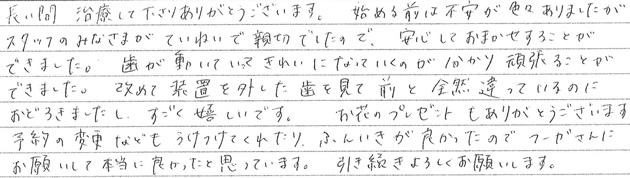 長い間 治療して下さりありがとうございます。 始める前は不安が色々ありましたが
スタッフのみなさまがていねいで親切でしたので、安心しておまかせすることが
できました。 歯が動いていってきれいになっていくのが分かり頑張ることが
できました。 改めて装置を外した歯を見て前と全然違っているのに
おどろきましたし、すごく嬉しいです。 お花のプレゼントもありがとうございます
予約の変更などもうけつけてくれたり、ふんいきが良かったので フーガさんに
お願いして本当に良かったと思っています。 引き続きよろしくお願いします。